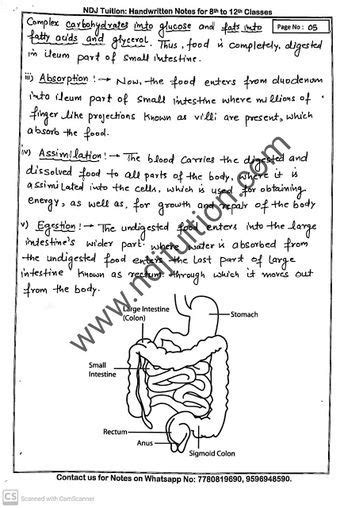 NDJ Tuition: Handwritten Notes for 8th to 12th Classes
Page No: 05
Complex carbohydrates into glucose and fats into
fatty acids and glycerol. Thus, food is completely digested
in ileum part of small intestine.
iii) Absorption!→ Now, the food enters from duodenum
into ileum part of small intestine where millions of
finger like projections known as villi are present, which
absorb the food.
iv) Assimilation!→ The blood carries the digested and
dissolved food to all parts of the body, where it is
assimilated into the cells, which is used for obtaining
energy, as well as, for growth and repair of the body
v) Egestion!→ The undigested food enters into the large
intestine's wider part where water is absorbed from
the undigested food enters the lost part of large
intestine known as rectum through which it moves out
from the body.
www.ndjtuition.com
Large Intestine
(Colon)
Stomach
Small
Intestine
Rectum
Anus
Sigmoid Colon
Contact us for Notes on Whatsapp No: 7780819690, 9596948590.
CS Scanned with CamScanner